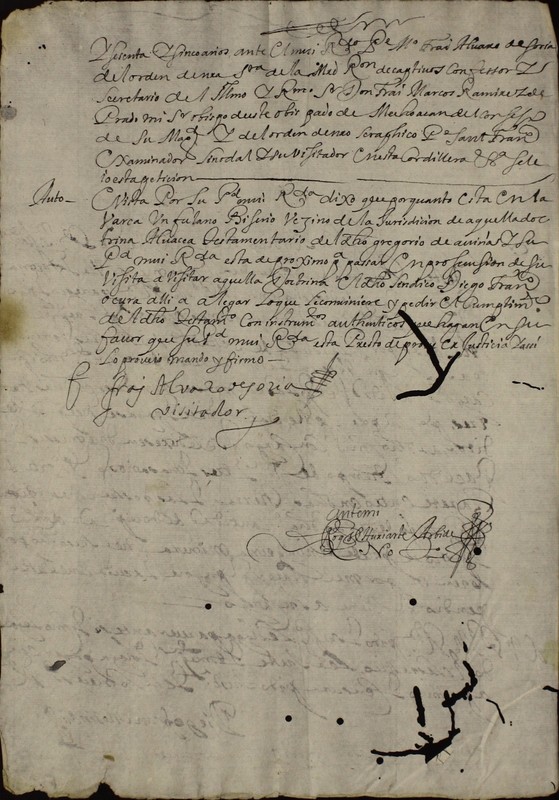 Y sesenta Y sinco años ante el mui Rdo Pe Mo Frai Alvaro de soria
del orden de nra Sra de la Med Ron de captivos Confessor Y
Secretario del Illmo Y Rmo Sr Don Frai Marcos Ramirez de
Prado mi Sr obispo de este obispado de Mechoacan del
de Su Magd Y del orden de nro Seraphico Pe Sant Franco
Examinador Sinodal Y su Visitador en esta Cordillera se le
io esta peticion
Auto—
E Vista Por Su Pd mui Rda dixo que por quanto esta en la
Varca Un fulano Viserio Vezino de la Jurisdicion de aquella doc
trina Albacea Testamentario del dho gregorio de Y Su
Pd mui Rda esta de proximo a passar en prosecusion de su
Visita a Visitar aquella Doctrina el dho Sindico Diego Franco
ocura alli a alegar lo que le conviniere Y pedir el Cumplimto
del dho Testamto Con instrumtos authenticos que hagan en su
favor que su Pd mui Rda esta Presto de Justicia Y assi
Lo proveio mando y firmo—
Frai Alvaro de soria
Visitador
Ante mi
No